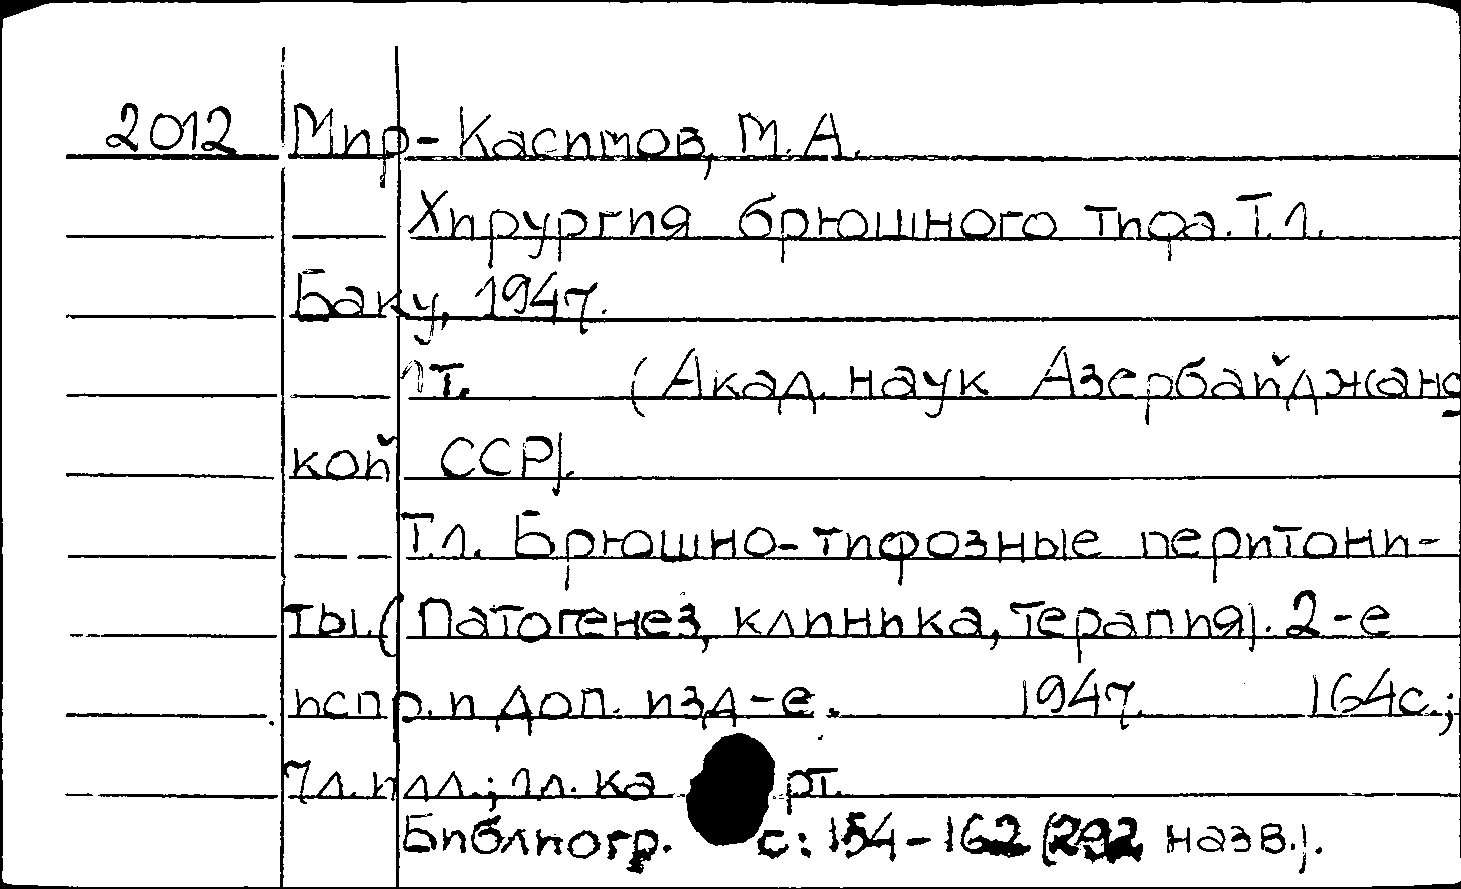 2012 Мир-Касимов, М.А.
Хирургия брюшного тифа. Т.1.
Баку, 1947.
1т. (Акад. наук Азербайджанс
кой ССР).
Т.1. Брюшно-тифозные перитони-
ты. (Патогенез, клиника, терапия). 2-е
испр. и доп. изд-е. 1947. 164с.;
7л. илл.; 1л. ка рт.
Библиогр. с: 154-162 (292 назв.).